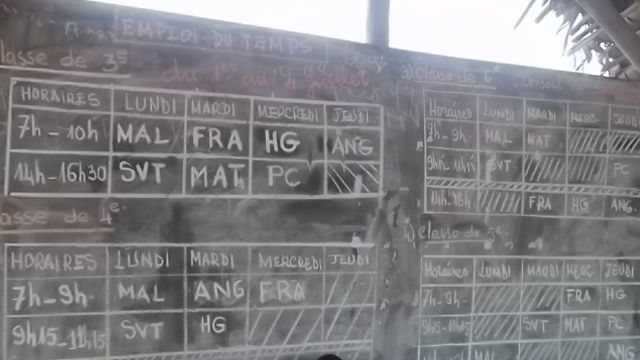 EMPLOI DU TEMPS
lasse de 3e
du 1er au 4 juillet
HORAIRES LUNDI MARDI MERCREDI JEUDI
7h-10h MAL FRA HG ANG
14h-16h30 SVT MAT PC
asse de 4e
HORAIRES LUNDI MARDI MERCREDI JEUDI
7h-9h MAL ANG FRA
9h15-11h15 SVT HG
a) Classe de 6e
Horaires LUNDI MARDI MERC JEUDI
7h-9h MAL MAT
9h15-11h15 SVT PC
FRA HG ANG
b) Classe de 5e
Horaires LUNDI MARDI MERC JEUDI
7h-9h FRA HG
9h15-11h15 SVT MAT PC
ANG